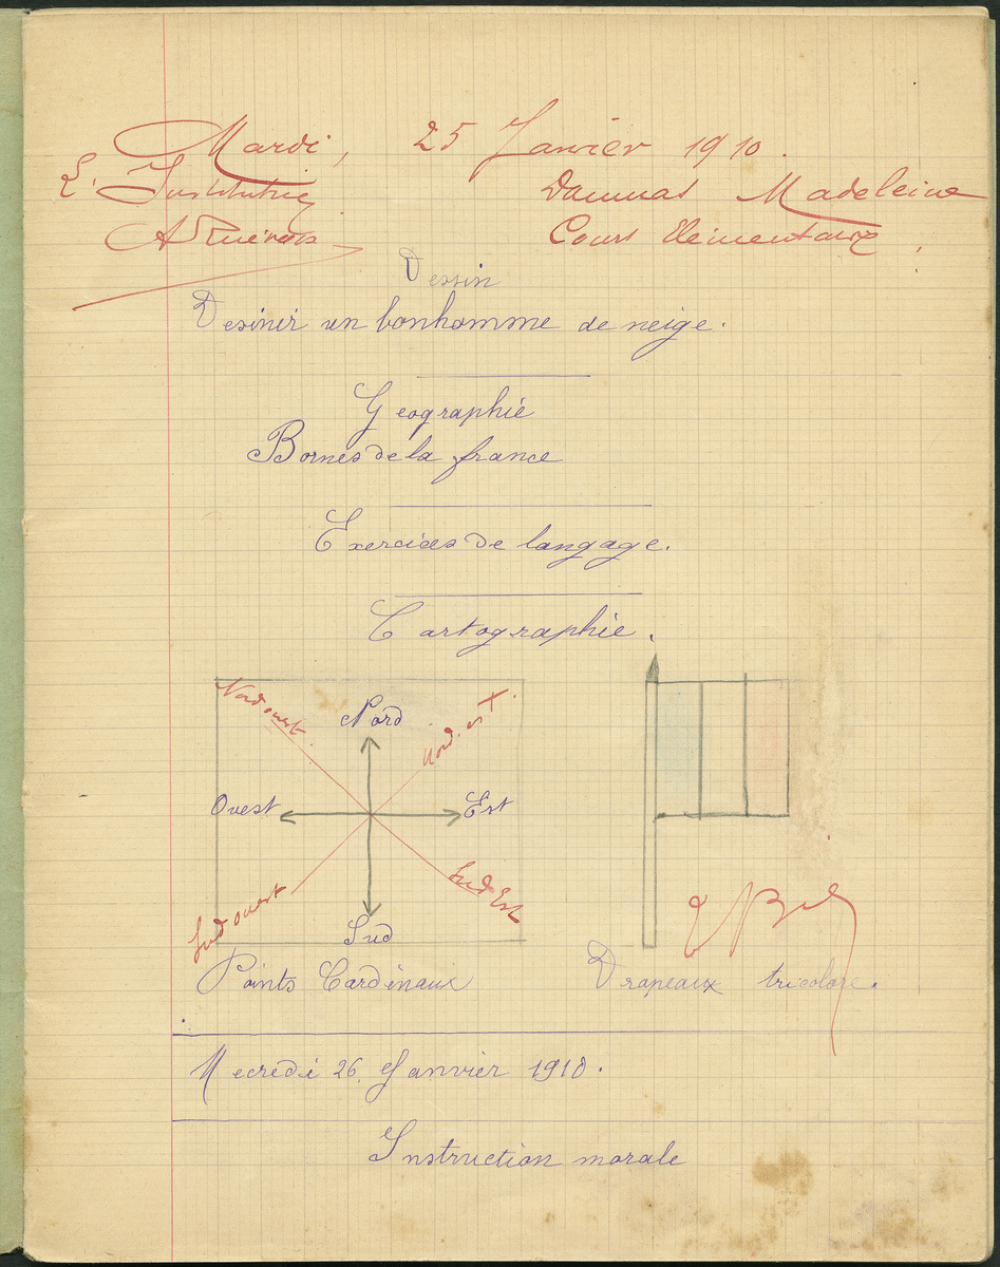 Mardi, 25 Janvier 1910.
L'Institutrice
Daumas Madeleine
Cours Elémentaire
Dessin
Desinir un bonhomme de neige.
Geographie
Bornes de la france
Exercices de langage.
Cartographie.
Nord ouest.
Nord
Nord. est.
Ouest
Est
Sud ouest
Sud
Sud Est
T B
Points Cardinaux
Drapeaux tricolore.
Mecredi 26 Janvier 1910.
Instruction morale